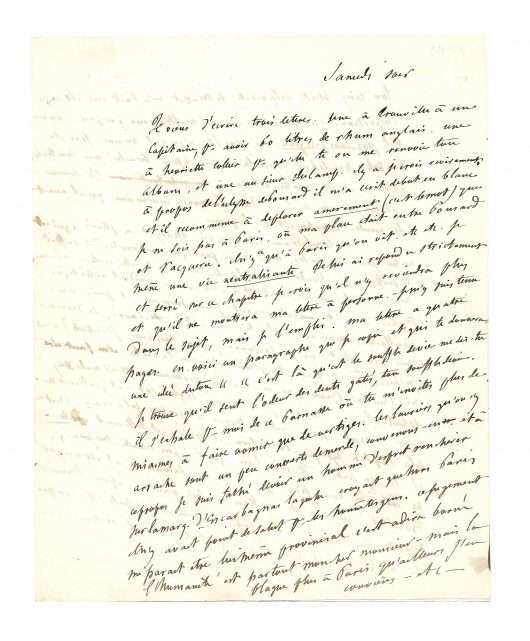 Samedi soir
Je viens d'écrire trois lettres. une à Trouville à un
capitaine, pr avoir 60 litres de rhum anglais. une
à henriette Collier pr qu'elle te ou me renvoie ton
album. et une au sieur ducamp. il y a je crois revirement.
à propos de l'ulysse de Ponsard il m'a écrit de but en blanc
et il recommence à déplorer amerement (c'est le mot) que
je ne sois pas à Paris. où ma place était entre Ponsard
et Vacquerie. il n'y a qu'à Paris qu'on vit etc etc. je
mène une vie neutralisante. je lui ai répondu strictement
et serré sur ce chapitre. je crois qu'il n'y reviendra plus
et qu'il ne montrera ma lettre à personne. je m'y suis tenu
dans le sujet, mais je l'emplis. ma lettre a quatre
pages. en voici un paragraphe que je copie et qui te donnera
une idée du ton "c'est là qu'est le souffle de vie me dis-tu
je trouve qu'il sent l'odeur des dents gatées, ton souffle de vie.
il s'exhale pr moi de ce Parnasse où tu m'invites plus de
miasmes à faire vomir que de vertiges. les lauriers qu'on s'y
arrache sont un peu couverts de merde, convenons-en. et à
ce propos je suis faché de voir un homme d'esprit renchérir
sur la marq. d'Escarbagnas laquelle croyait que hors Paris
il n'y avait point de salut pr les honnêtes gens. ce jugement
me parait être lui même provincial c'est à dire borné
l'humanité est partout mon cher monsieur mais la
blague plus à Paris qu'ailleurs j'en
conviens - etc -